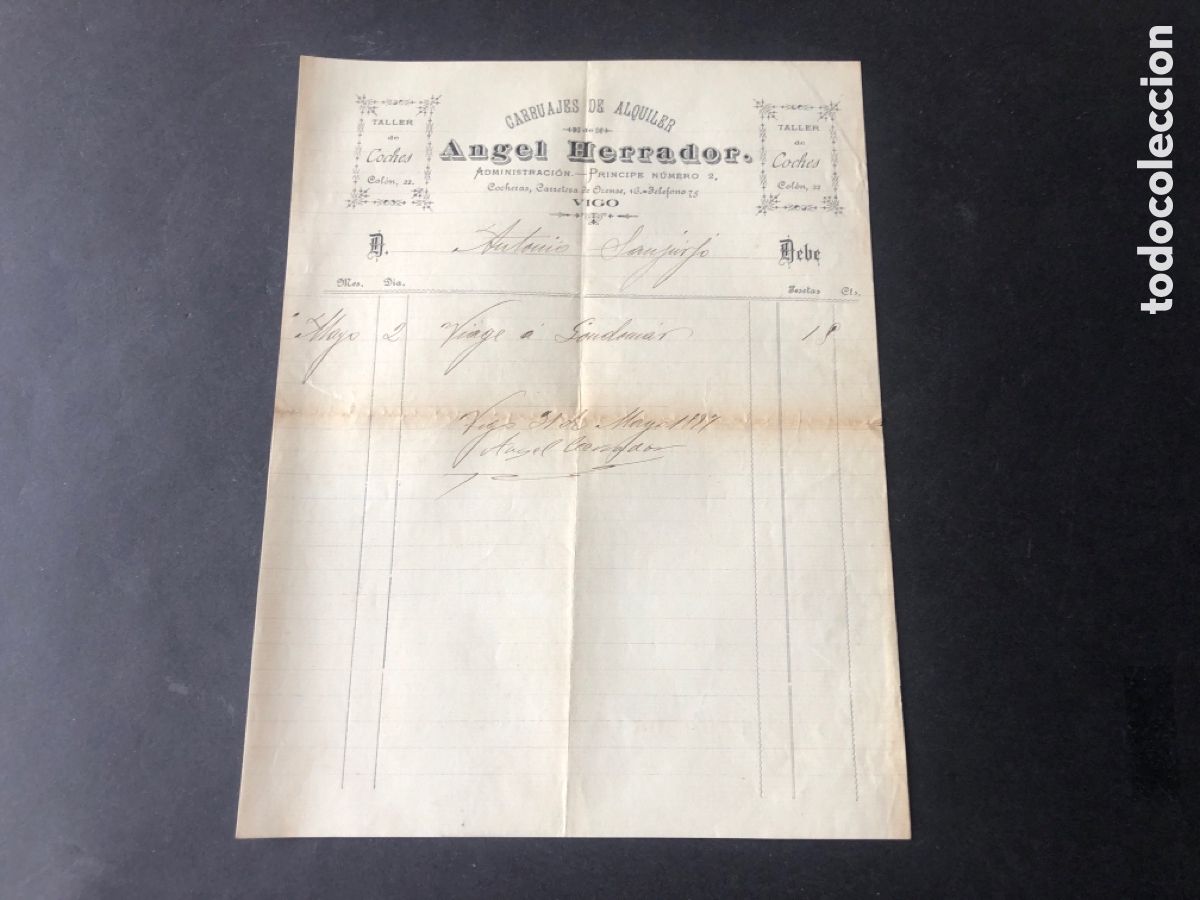 CARRUAJES DE ALQUILER
de
Angel Herrador.
ADMINISTRACIÓN.—PRINCIPE NÚMERO 2,
Cocheras, Carretera de Orense, 16.-Telefono 75
VIGO
TALLER
de
Coches
Colón, 22.
TALLER
de
Coches
Colón, 22
D. Antonio Sanjurjo Debe
Mes. Dia. Pesetas Cts.
Mayo 2 Viage á Gondomár
Vigo 31 de Mayo
Angel Herrador
todocoleccion